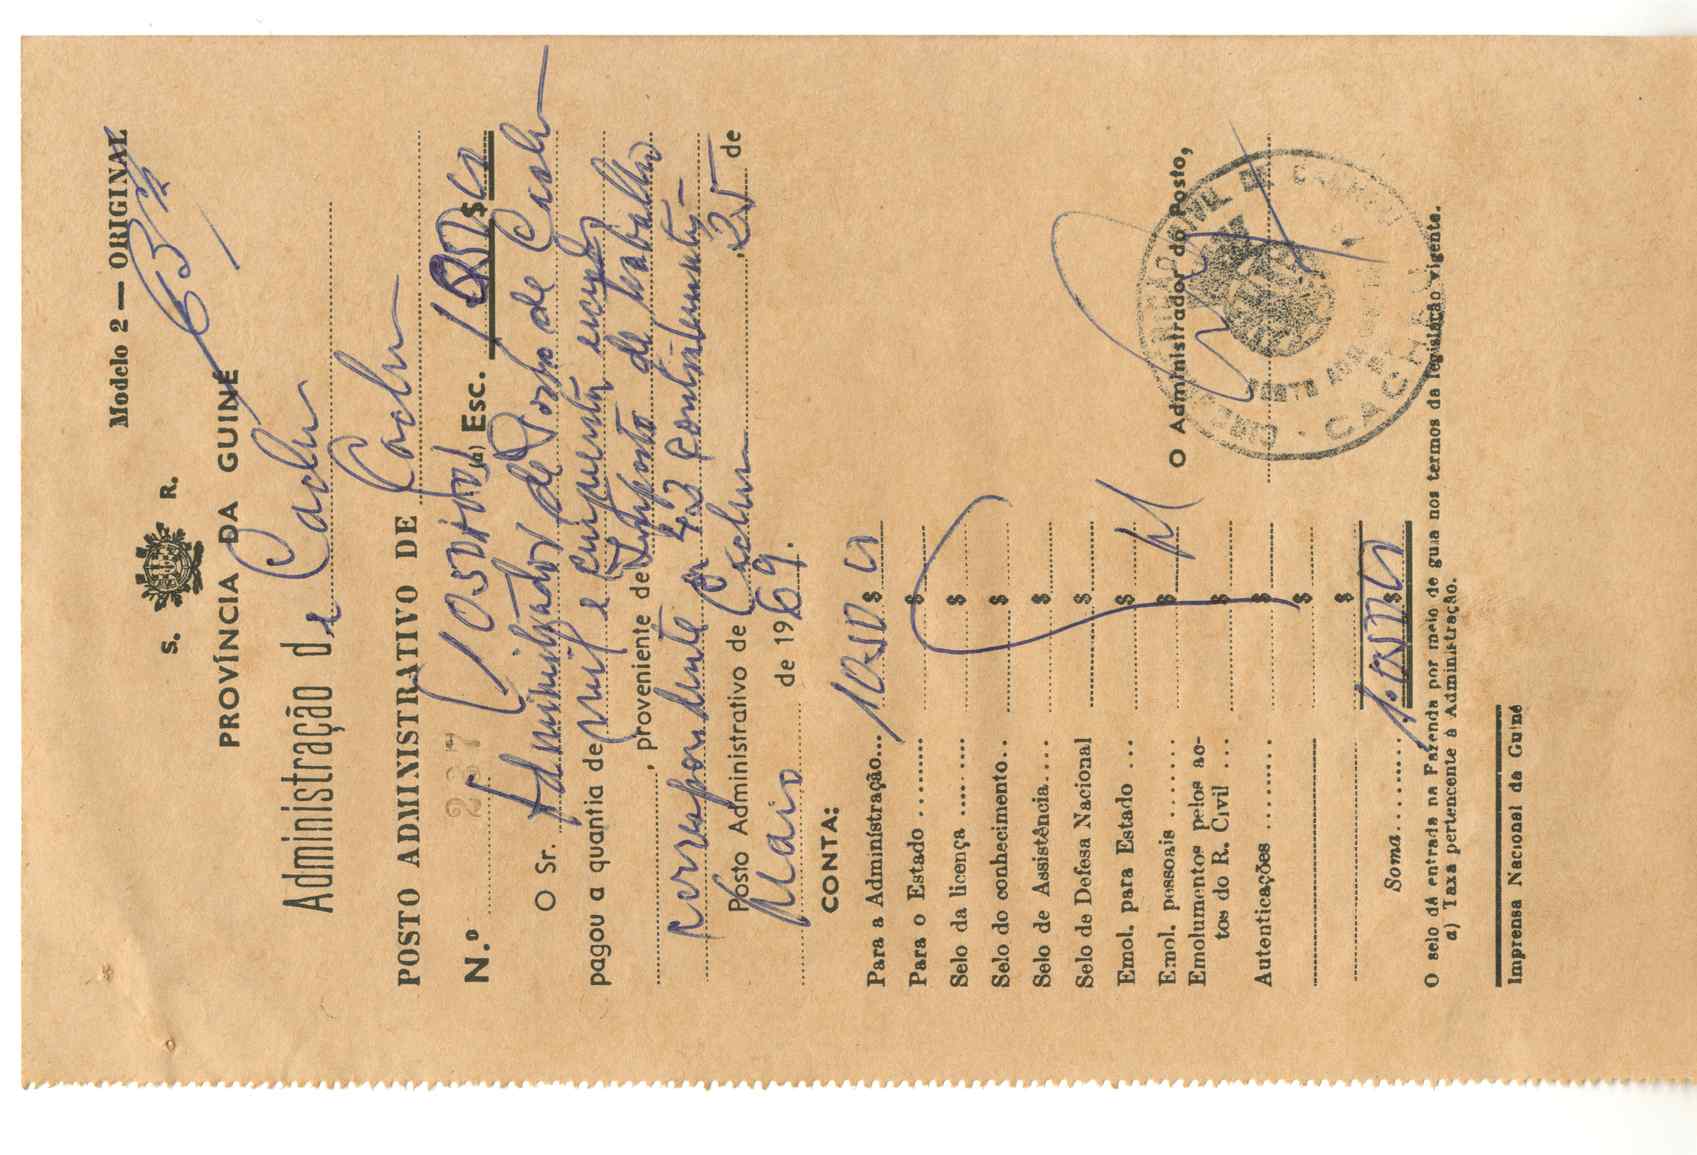 Modelo 2 — ORIGINAL
S. R.
PROVÍNCIA DA GUINÉ
Administração de Cacheu
POSTO ADMINISTRATIVO DE Cacheu
N.º 237 (a) Esc. 1.050$00
O Sr. Administrador do Posto de Cacheu
pagou a quantia de mil e cinquenta escudos
, proveniente de Imposto de trabalho
correspondente a 42 contribuintes
Posto Administrativo de Cacheu, 25 de
Maio de 1969.
CONTA:
Para a Administração... 1050$00
Para o Estado ........ $
Selo da licença ........ $
Selo do conhecimento.. $
Selo de Assistência.... $
Selo de Defesa Nacional $
Emol. para Estado ... $
Emol. pessoais ....... $
Emolumentos pelos actos do R. Civil ... $
Autenticações ........ $
$
$
Soma........ 1.050$00
O Administrador do Posto,
CACHEU
O selo dá entrada na Fazenda por meio de guia nos termos da legislação vigente.
a) Taxa pertencente à Administração.
Imprensa Nacional da Guiné